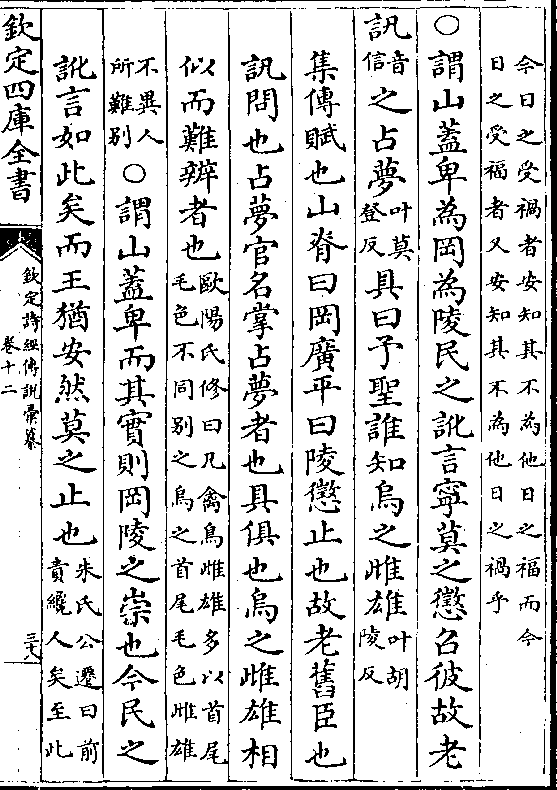 今日之受禍者安知其不為他日之福而今
日之受福者又安知其不為他日之禍乎
○謂山蓋卑為岡為陵民之訛言寧莫之懲召彼故老
訊音信之占夢叶莫登反具曰予聖誰知烏之雌雄叶胡陵反
集傳賦也山脊曰岡廣平曰陵懲止也故老舊臣也
訊問也占夢官名掌占夢者也具俱也烏之雌雄相
似而難辨者也歐陽氏修曰凡禽鳥雌雄多以首尾毛色不同别之烏之首尾毛色雌雄
不異人所難别○謂山蓋卑而其實則岡陵之崇也今民之
訛言如此矣而王猶安然莫之止也朱氏公遷曰前責纔人矣至此
欽定四庫全書
欽定詩經傳說彙纂
卷十二
三十八